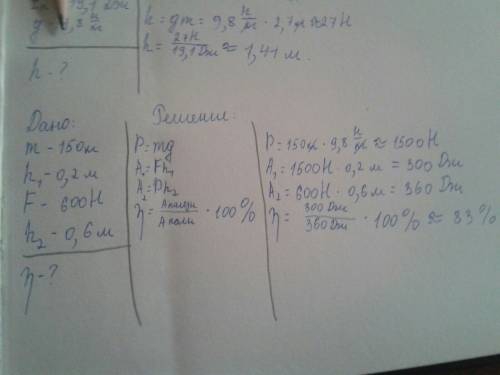 19,1 Дж
g 9,8 Н/м
h - ?
h = gm = 9,8 Н/м · 2,7 кг ≈ 27Н
h = 27Н/19,1 Дж ≈ 1,41 м.
Дано:
m - 150 кг
h₁ - 0,2 м
F - 600Н
h₂ - 0,6 м
η - ?
Решение:
P = mg
A₁ = Fh₁
A₂ = Ph₂
η = Аполезн/Аполн · 100%
P = 150 кг · 9,8 Н/кг ≈ 1500Н
A₁ = 1500Н · 0,2 м = 300 Дж
A₂ = 600Н · 0,6 м = 360 Дж
η = 300 Дж/360 Дж · 100% ≈ 83%